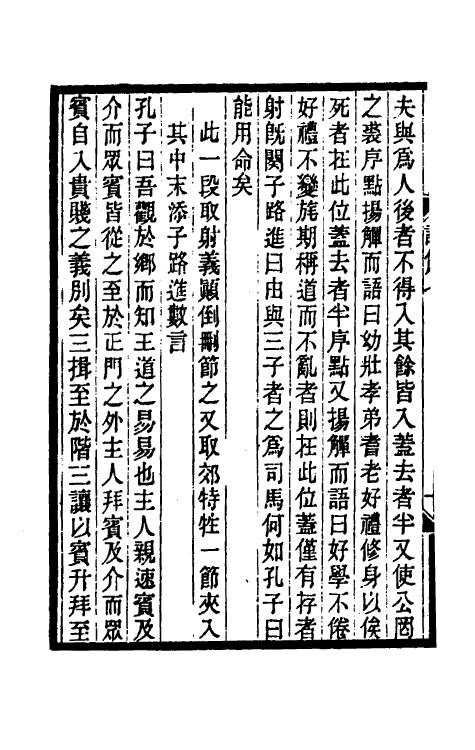 夫與爲人後者不得入其餘皆入蓋去者半又使公罔
之裘序點揚觶而語曰幼壯孝弟耆老好禮修身以俟
死者在此位蓋去者半序點又揚觶而語曰好學不倦
好禮不變旄期稱道而不亂者則在此位蓋僅有存者
射旣闋子路進曰由與三子者之爲司馬何如孔子曰
能用命矣
此一段取射義顚倒刪節之又取郊特牲一節夾入
其中末添子路進數言
孔子曰吾觀於鄉而知王道之易易也主人親速賓及
介而眾賓皆從之至於正門之外主人拜賓及介而眾
賓自入貴賤之義別矣三揖至於階三讓以賓升拜至